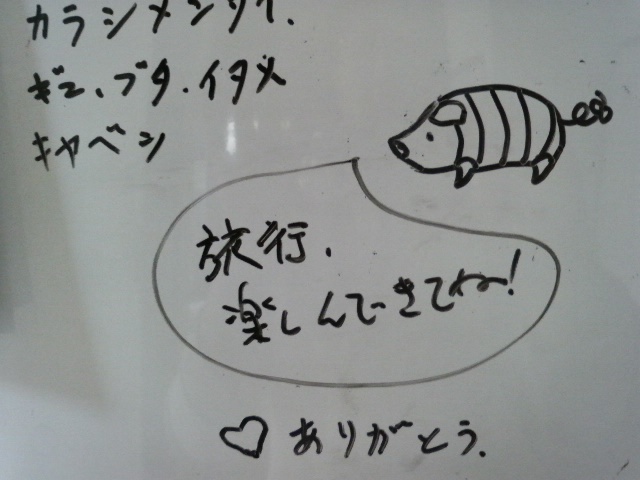 カラシメンタイ.
ギュ、ブタ.イタメ
キャベツ
旅行.
楽しんできてねー!
♡ありがとう.